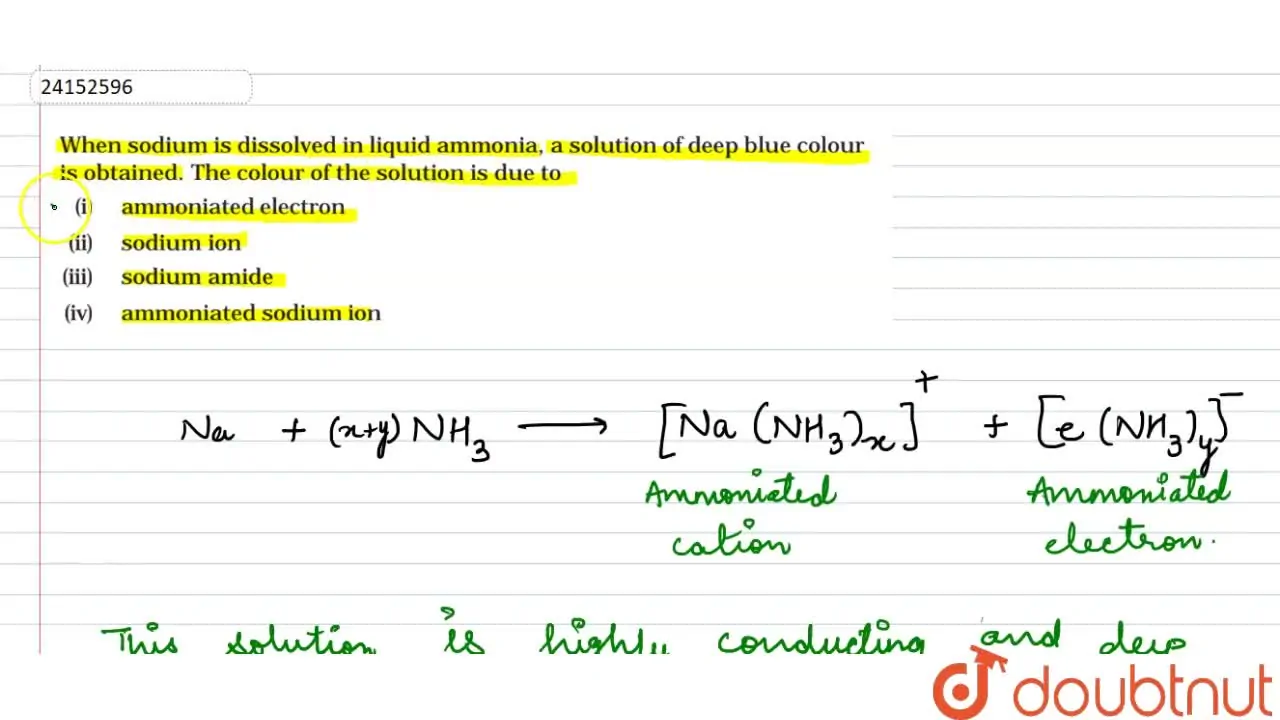 24152596
When sodium is dissolved in liquid ammonia, a solution of deep blue colour
is obtained. The colour of the solution is due to
(i) ammoniated electron
(ii) sodium ion
(iii) sodium amide
(iv) ammoniated sodium ion
Na + (x+y) NH₃ ⟶ [Na (NH₃)ₓ]⁺ + [e (NH₃)y]⁻
Ammoniated Ammoniated
cation electron.
This solution is highly conducting and deep
doubtnut